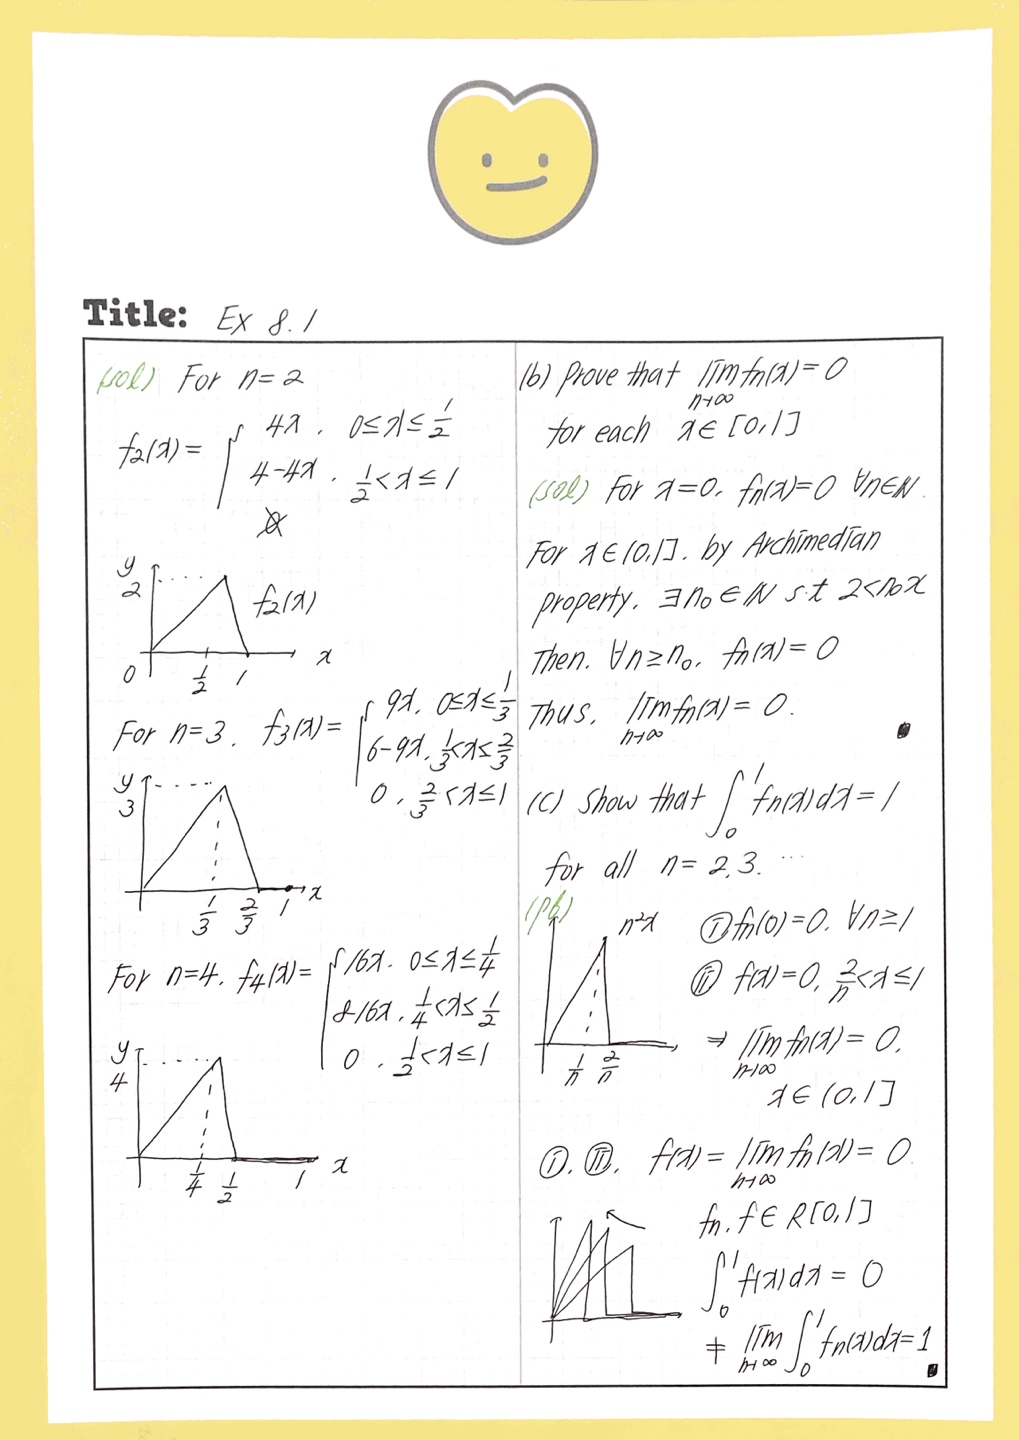 Title: Ex 8.1
(sol) For n=2
f₂(x) = { 4x, 0≤x≤1/2
4-4x, 1/2<x≤1
y
2
f₂(x)
0 1/2 1 x
For n=3, f₃(x) = { 9x, 0≤x≤1/3
6-9x, 1/3<x≤2/3
0, 2/3<x≤1
y
3
1/3 2/3 1 x
For n=4, f₄(x) = { 16x, 0≤x≤1/4
8-16x, 1/4<x≤1/2
0, 1/2<x≤1
y
4
1/4 1/2 1 x
(b) Prove that lim n→∞ fn(x)=0
for each x∈[0,1]
(sol) For x=0, fn(x)=0 ∀n∈ℕ.
For x∈(0,1], by Archimedian
property, ∃n₀∈ℕ s.t 2<n₀x
Then, ∀n≥n₀, fn(x)=0
Thus, lim n→∞ fn(x)=0.
(c) Show that ∫₀¹ fn(x)dx=1
for all n=2,3, ⋯
(pf)
n²x
1/n 2/n
Ⓘ fn(0)=0, ∀n≥1
Ⓘⓘ f(x)=0, 2/n<x≤1
⇒ lim n→∞ fn(x)=0,
x∈(0,1]
Ⓘ, Ⓘⓘ, f(x)=lim n→∞ fn(x)=0
fn, f∈R[0,1]
∫₀¹ f(x)dx=0
≠ lim n→∞ ∫₀¹ fn(x)dx=1